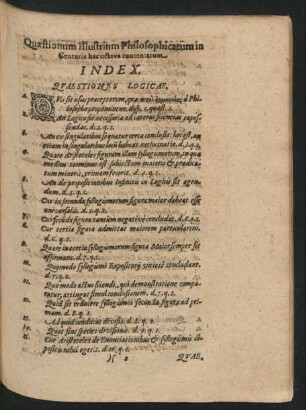 Quæstionum Illustrium Philosophicarum in
Centuria hac octava contentarum
INDEX.
QVAESTIONES LOGICAE.
1. Quis sit usus præceptorum, quæ à Phi-
losophis proponuntur. disp. 1. quæst. 1.
2. An Logica sit necessaria ad cæteras scientias capes-
sendas. d. 2. q. 1.
3. An ex singularibus sequatur certa conclusio: hoc est, an
etiam in singularibus locũ habeat ratiocinatio. d. 3. q. 1.
4. Quare Aristoteles figuram illam syllogismorum, in qua
medius terminus est subjectum majoris & prædica-
tum minoris, primam fecerit. d. 4. q. 1.
5. An de propositionibus infinitis in Logicis sit agen-
dum. d. 5. q. 1.
6. Cur in secunda syllogismorum figura major debeat esse
universalis. d. 6. q. 1.
7. Cur secunda figura tantum negativè concludat. d. 6. q. 2.
8. Cur tertia figura admittat majorem particularem.
d. 6. q. 3.
9. Quare in tertia syllogismorum figura Minor semper sit
affirmans. d. 7. q. 1.
10. Quomodo syllogismi Expositorij vitiosè concludant.
d. 7. q. 2.
11. Quo modo actus sciendi, qui demonstratione compa-
ratur, attingat simul conclusionem. d. 8. q. 1.
12. Quid sit reducere syllogismos secundæ figuræ ad pri-
mam. d. 8. q. 2.
13. Ad quid conducat divisio. d. 9. q. 1.
14. Quæ sint species divisionis. d. 9. q. 2.
15. Cur Aristoteles de Enunciationibus & syllogismis com-
positis nihil egerit. d. 10. q. 1.
QUAE-